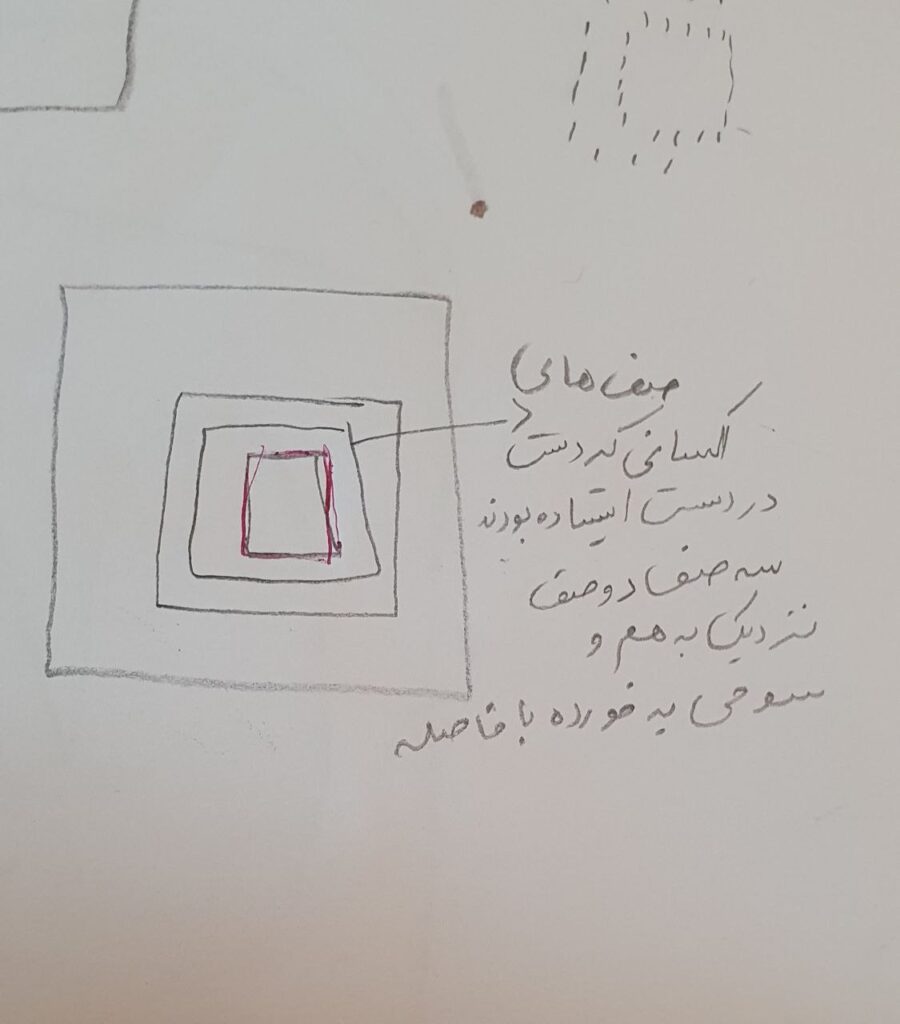 صف‌های
کسانی که دست
در دست ایستاده بودند
سه صف دو صف
نزدیک به هم و
سومی یه خورده با فاصله